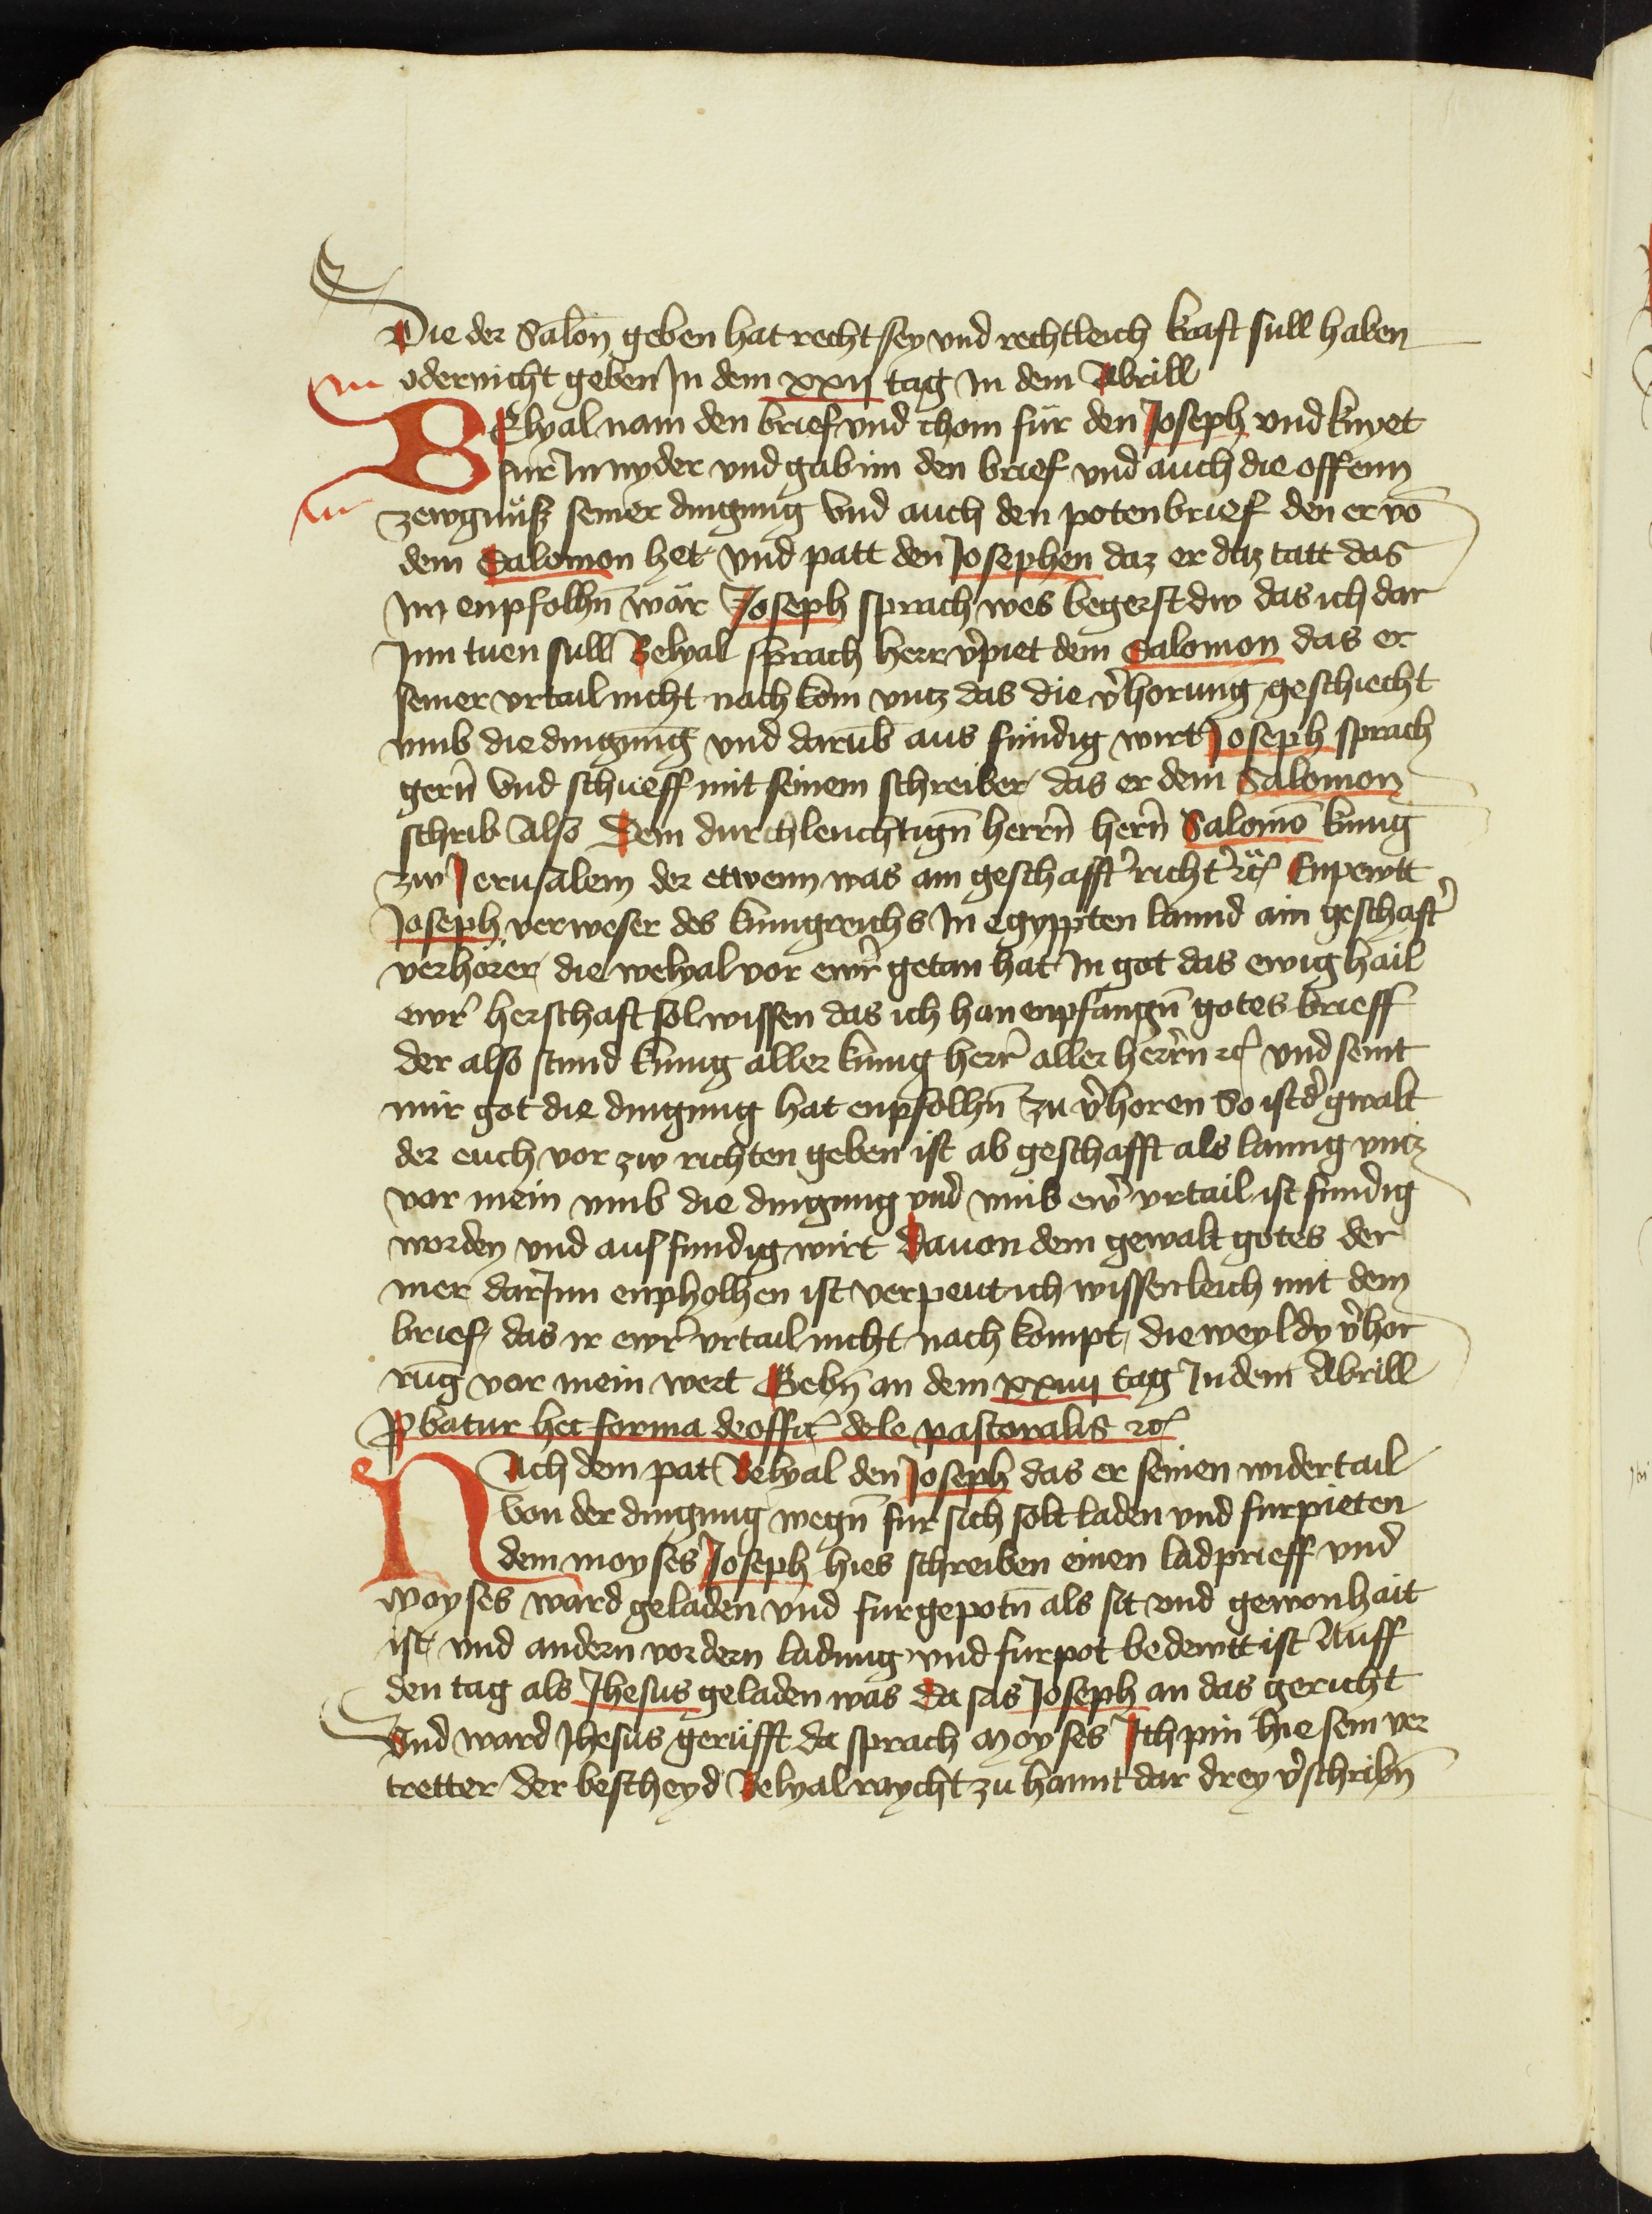 Die der Salon̄ geben hat recht sey vnd rechtleich kraft sull haben
oder nicht geben Jn dem xxij tag in dem Abrill
BElyal nam den brief vnd chom für den Joseph vnd knyet
für Jn nyder vnd gab im den brief vnd auch die offenn
zewgnüsz seiner dingung Vnd auch den potenbrief den er vō
dem Salomon het vnd patt den Josephen daz er daz tatt das
im enpfolhn̄ wär Joseph sprach wes begerst dw das ich dar
Jnn tuen sull Belyal sprach herr v̉piet dem Salomon das er
seiner vrtail nicht nach kom vntz das die v̉horung geschiecht
vmb die dingung vnd darub̄ aus fündig wirt Joseph sprach
gern̄ Vnd schueff mit seinem schreiber das er dem Salomon
schrib Also Dem durchleuchtign̄ herrn̄ hern̄ Salomō kunig
zw Jerusalem der etwenn was ain geschafft̉ richt̉ ꝛc̄ Enpewtt
Joseph verweser des kunigreichs Jn egyppten lannd ain geschaft̉
verhörer die welyal vor ewr̉ getan hat Jn got das ewig hail
ewr̉ herschaft sol wissen das ich han enpfangn̄ gotes brieff
der also stund kunig aller kunig herr̉ aller herrn̄ ꝛc̄ vnd seint
mir got die dingung hat enpfolhn̄ zu v̉horen So ist d̉ gwalt
der euch vor zw richten geben ist ab geschafft als lanng vntz
vor mein vmb die dingung vnd vmb ewr̉ vrtail ist fundig
worden vnd aus fundig wirt Dauon dem gewalt gotes der
mer darJnn enpholhen ist verpeut ich wissenleich mit dem
brief das ir ewr̉ vrtail nicht nach kompt die weyl dy v̉hor
rung vor mein wert Gebn̄ an dem xxiiij tag Jn dem Abrill
Pbatur hec forma de offic̄ dele pastoralis ꝛc̄
NAch dem pat Belyal den Joseph das er seinen widertail
von der dingung wegn̄ fur sich solt laden vnd furpieten
dem moyses Joseph hies schreiben einen ladprieff vnd
moyses ward geladen vnd fur gepotn̄ als sit vnd gewonhait
ist vnd andern vordern ladung vnd furpot bedewtt ist Auff
den tag als Jhesus geladen was Da sas Joseph an das gericht
Vnd ward Jhesus gerüfft da sprach moyses Jch pin hie sein ver
tretter der bescheyd Belyal raycht zu hannt dar drey v̉schribn̄